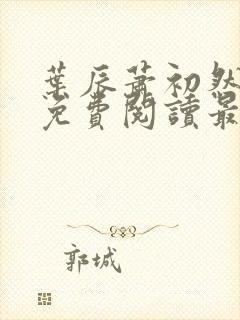 葉辰蕭初然
免費閱讀最
郭城